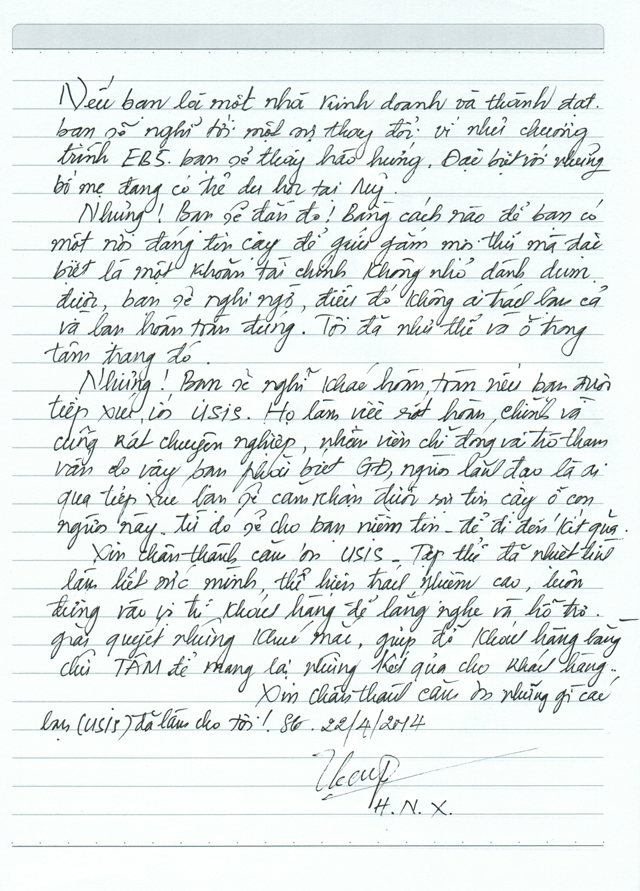 Nếu bạn là một nhà kinh doanh và thành đạt.
bạn sẽ nghĩ tới một sự thay đổi ví như chương
trình EB5. bạn sẽ thấy hào hứng. Đặc biệt với những
bố mẹ đang có trẻ du học tại Mỹ.
Nhưng! Bạn sẽ đắn đo! Bằng cách nào để bạn có
một nơi đáng tin cậy để gửi gắm mọi thứ mà đặc
biệt là một khoản tài chính không nhỏ dành dụm
được, bạn sẽ nghi ngờ, điều đó không ai trách bạn cả
và bạn hoàn toàn đúng. Tôi đã như thế và ở trong
tâm trạng đó.
Nhưng! Bạn sẽ nghĩ khác hoàn toàn nếu bạn được
tiếp xúc với USIS. Họ làm việc rất hoàn chỉnh và
cũng rất chuyên nghiệp, nhân viên chỉ đóng vai trò tham
vấn do vậy bạn phải biết GĐ, người lãnh đạo là ai
qua tiếp xúc bạn sẽ cảm nhận được sự tin cậy ở con
người này. từ đó sẽ cho bạn niềm tin - để đi đến kết quả.
Xin chân thành cảm ơn USIS - Tập thể đã nhiệt tình
làm hết sức mình, thể hiện trách nhiệm cao, luôn
đứng vào vị trí khách hàng để lắng nghe và hỗ trợ.
giải quyết những khúc mắc, giúp đỡ khách hàng bằng
chữ TÂM để mang lại những kết quả cho khách hàng..
Xin chân thành cảm ơn những gì các
bạn (USIS) đã làm cho tôi! SG. 22/4/2014
H.N.X.